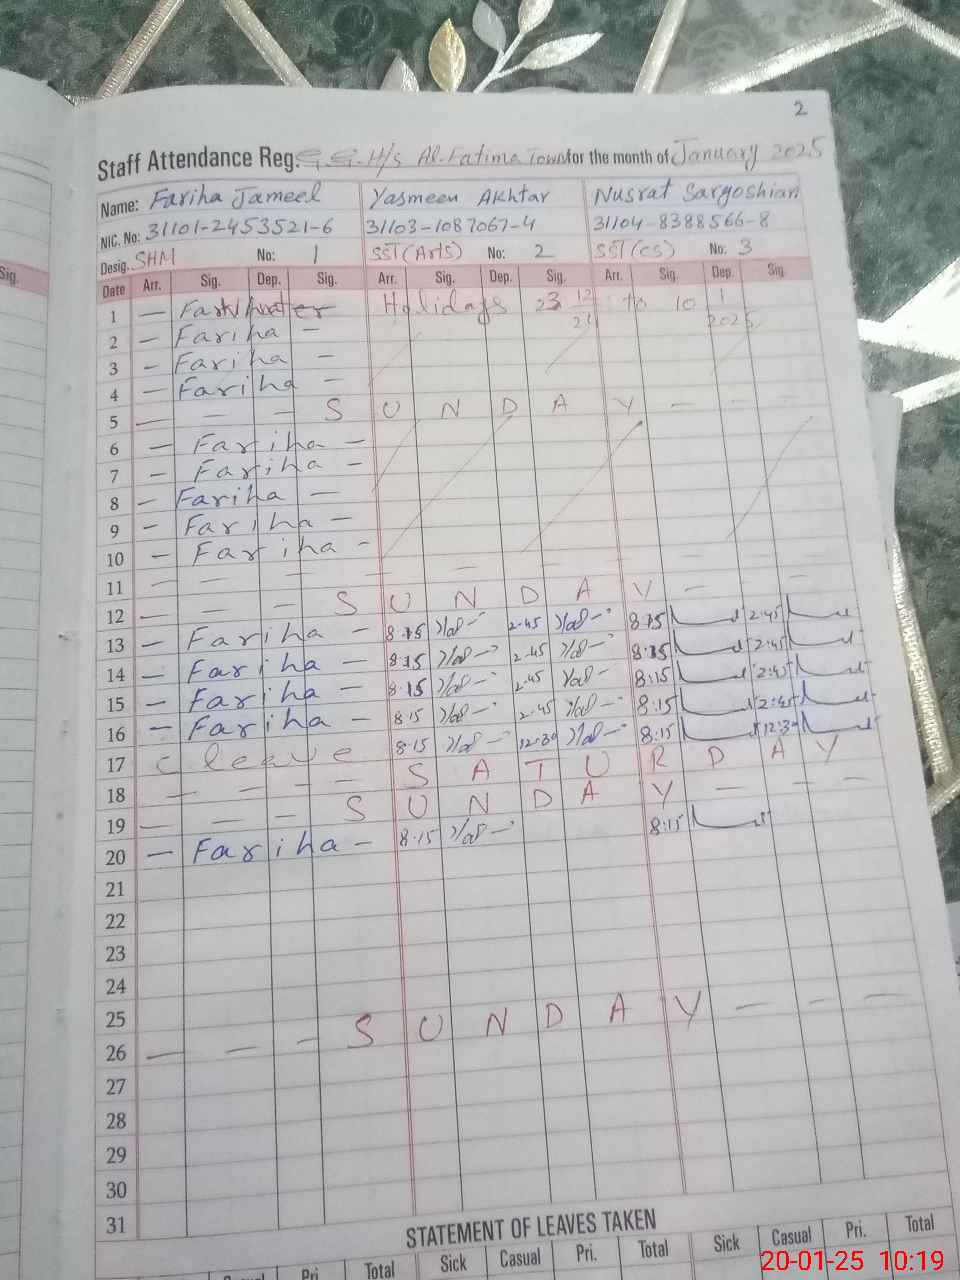 2
Staff Attendance Reg. G.G.H/S Al-Fatima Town for the month of January 2025
Name: Fariha Jameel Yasmeen Akhtar Nusrat Sargoshian
NIC. No: 31101-2453521-6 31103-1087067-4 31104-8388566-8
Desig. SHM No: 1 SST (Arts) No: 2 SST (CS) No: 3
Sig.
Date Arr. Sig. Dep. Sig. Arr. Sig. Dep. Sig. Arr. Sig. Dep. Sig.
1 — Holidays 23 12/24 to 10 1/2025
2 — Fariha —
3 — Fariha —
4 — Fariha —
5 — — — S U N D A Y — — —
6 — Fariha —
7 — Fariha —
8 — Fariha —
9 — Fariha —
10 — Fariha —
11 — — — — — — —
12 — — S U N D A Y — —
13 — Fariha — 8:15 2:45 8:15 2:45
14 — Fariha — 8:15 2:45 8:15 2:45
15 — Fariha — 8:15 2:45 8:15 2:45
16 — Fariha — 8:15 2:45 8:15 2:45
17 C leave 8:15 12:30 8:15 12:30
18 — — — — S A T U R D A Y
19 — — — S U N D A Y — — —
20 — Fariha — 8:15 8:15
21
22
23
24
25
26 — — — S U N D A Y — — —
27
28
29
30
31
STATEMENT OF LEAVES TAKEN
Casual Pri. Total Sick Casual Pri. Total Sick Casual Pri. Total
20-01-25 10:19